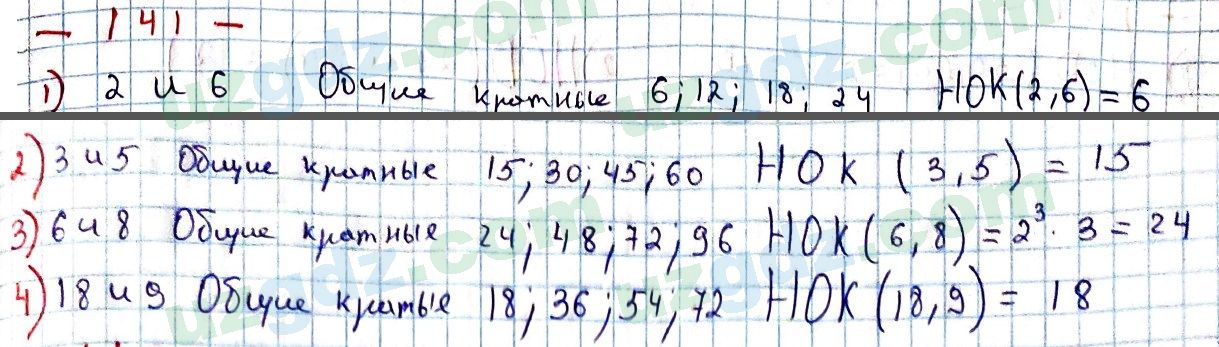 — 141 —
1) 2 и 6 Общие кратные 6; 12; 18; 24 НОК(2,6) = 6
2) 3 и 5 Общие кратные 15; 30; 45; 60 НОК (3,5) = 15
3) 6 и 8 Общие кратные 24; 48; 72; 96 НОК(6,8) = 2³ · 3 = 24
4) 18 и 9 Общие кратые 18; 36; 54; 72 НОК(18,9) = 18